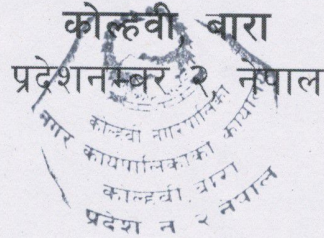 कोल्हवी, बारा
प्रदेशनम्बर २, नेपाल
कोल्हवी नगरपालिका
नगर कार्यपालिकाको कार्यालय
कोल्हवी, बारा
प्रदेश नं २ नेपाल